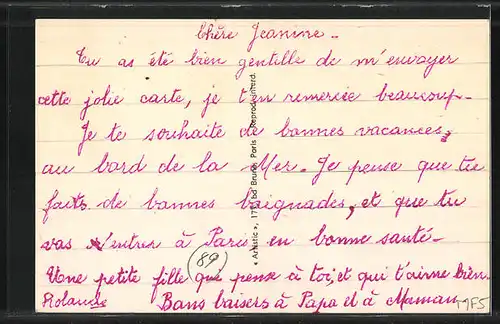 Chère Jeanine..
Tu as été bien gentille de m'envoyer
cette jolie carte, je t'en remercie beaucoup-
Je te souhaite de bonnes vacances,
au bord de la Mer. Je pense que tu
faits de bonnes baignades, et que tu
vas rentrer à Paris en bonne santé-
Une petite fille que pense à toi, et qui t'aime bien.
Rolande Bons baisers à Papa et à Maman
89
« Artistic », Bd Brune, Paris Reprod. interd.